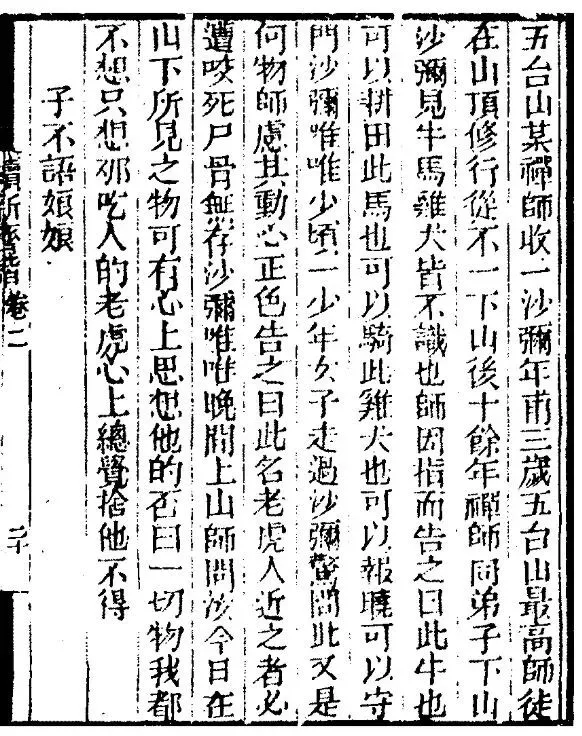 五台山某禪師收一沙彌年甫三歲五台山最高師徒
在山頂修行從不一下山後十餘年禪師同弟子下山
沙彌見牛馬雞犬皆不識也師因指而告之曰此牛也
可以耕田此馬也可以騎此雞犬也可以報曉可以守
門沙彌唯唯少頃一少年女子走過沙彌驚問此又是
何物師慮其動心正色告之曰此名老虎人近之者必
遭咬死尸骨無存沙彌唯唯晚間上山師問汝今日在
山下所見之物可有心上思想他的否曰一切物我都
不想只想那吃人的老虎心上總覺捨他不得
子不語娘娘
卷二